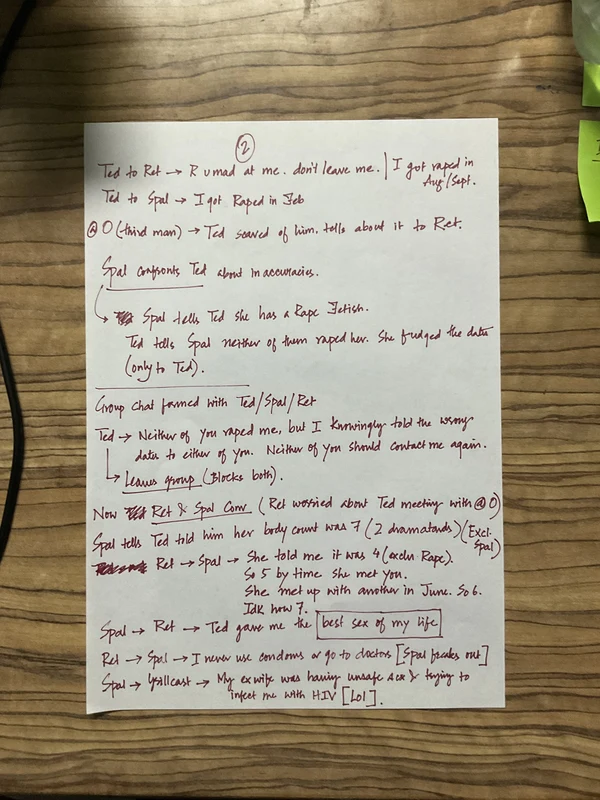 2
Ted to Ret → R u mad at me. don't leave me. | I got raped in Aug/Sept.
Ted to Spal → I got Raped in Feb
@ O (third man) → Ted scared of him. tells about it to Ret.
Spal confronts Ted about inaccuracies.
↳ Spal tells Ted she has a Rape Fetish.
Ted tells Spal neither of them raped her. She fudged the dates
(only to Ted).
Group chat formed with Ted/Spal/Ret
Ted → Neither of you raped me, but I knowingly told the wrong
dates to either of you. Neither of you should contact me again.
↳ Leaves group (Blocks both).
Now Ret & Spal Conv (Ret worried about Ted meeting with @ O)
Spal tells Ted told him her body count was 7 (2 dramatards) (Excl. Spal)
Ret → Spal → She told me it was 4 (exclu Rape).
So 5 by time she met you.
She met up with another in June. So 6.
Idk how 7.
Spal → Ret → Ted gave me the best sex of my life
Ret → Spal → I never use condoms or go to doctors [Spal freaks out]
Spal → → My ex wife was having unsafe & trying to
infect me with HIV [Lol].